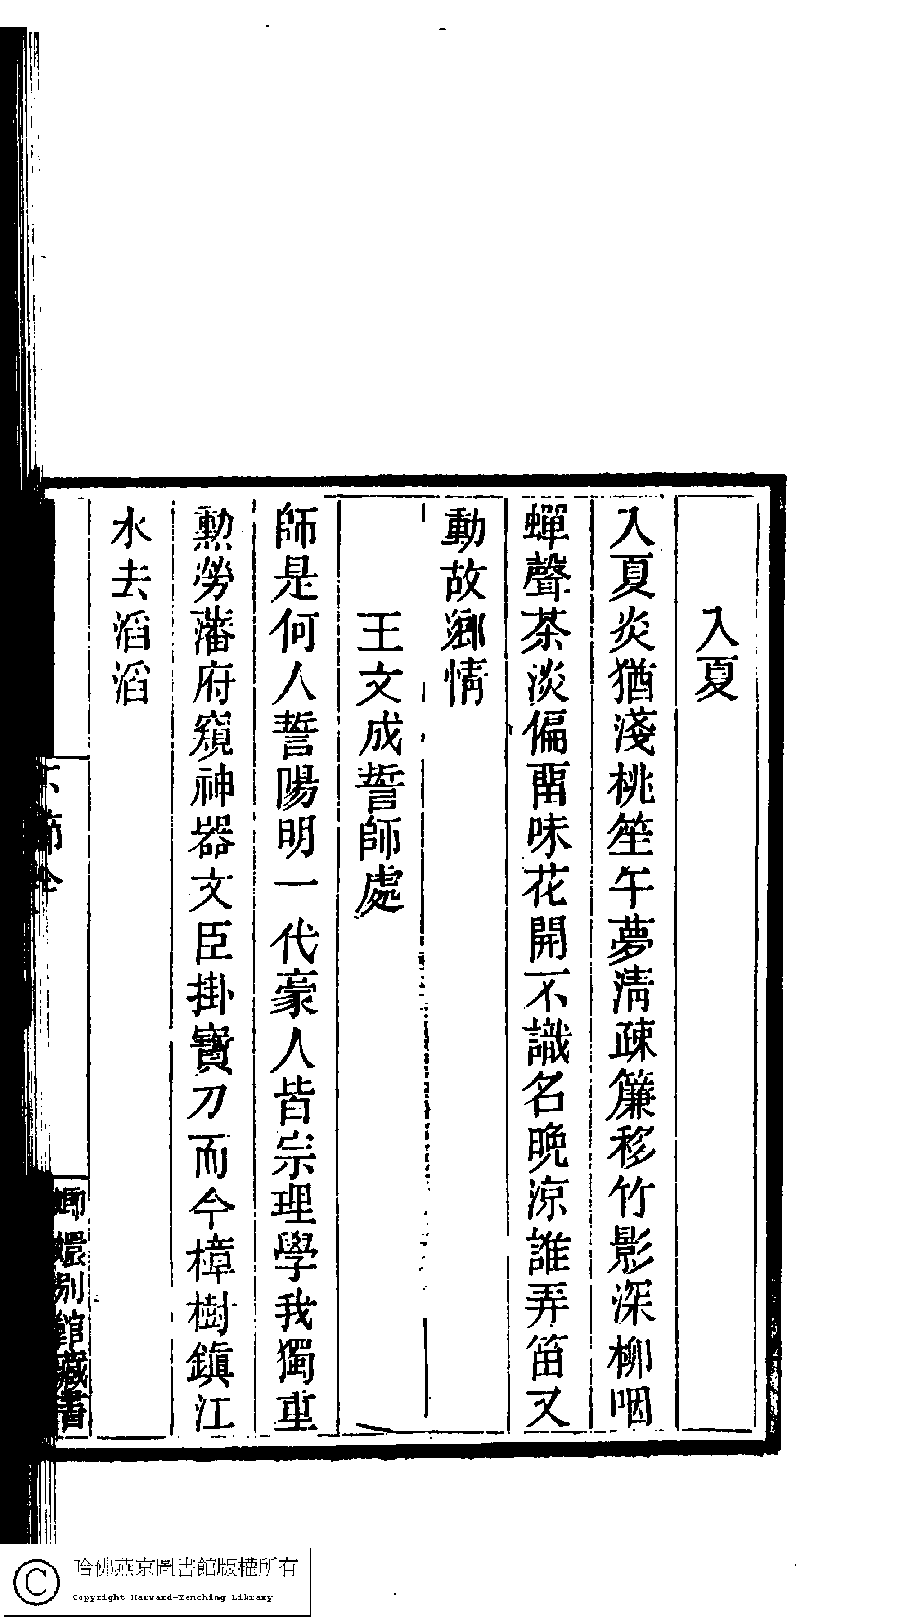 入夏
入夏炎猶淺桃笙午夢清疎簾移竹影深柳咽
蟬聲茶淡偏畱味花開不識名晚涼誰弄笛又
動故鄉情
王文成誓師處
師是何人誓陽明一代豪人皆宗理學我獨重
勲勞藩府窺神器文臣掛寶刀而今樟樹鎮江
水去滔滔
嬛別館藏書
哈佛燕京圖書館版權所有
Copyright Harvard-Yenching Library